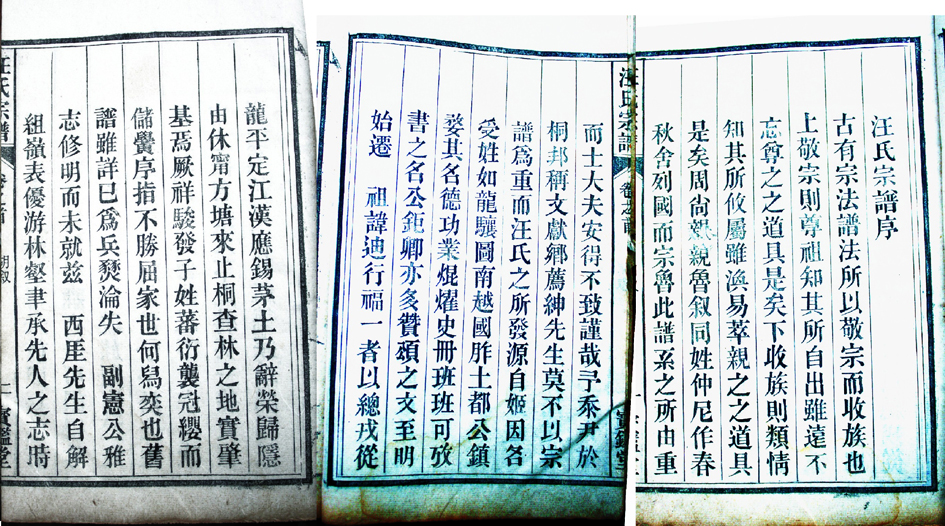 汪氏宗譜序
古有宗法譜法所以敬宗而收族也
上敬宗則尊祖知其所自出雖遠不
忘尊之之道具是矣下收族則類情
知其所攸屬雖渙易萃親之之道具
是矣周尚親親魯叙同姓仲尼作春
秋舍列國而宗魯此譜系之所由重
汪氏宗譜
而士大夫安得不致謹哉予忝尹於
桐邦稱文獻鄉薦紳先生莫不以宗
譜爲重而汪氏之所發源自姬因名
受姓如龍驤圖南越國胙土都公鎮
婺其名德功業焜燿史冊班班可攷
書之名公鉅卿亦多贊頌之文至明
始遷 祖諱迪行福一者以總戎從
龍平定江漢應錫茅土乃辭榮歸隱
由休甯方塘來止桐查林之地實肇
基焉厥祥駿發子姓蕃衍襲冠纓而
儲黌序指不勝屈家世何舄奕也舊
譜雖詳已爲兵燹淪失 副憲公雅
志修明而未就茲 西厓先生自解
組嶺表優游林壑聿承先人之志時
汪氏宗譜
寶鑑堂